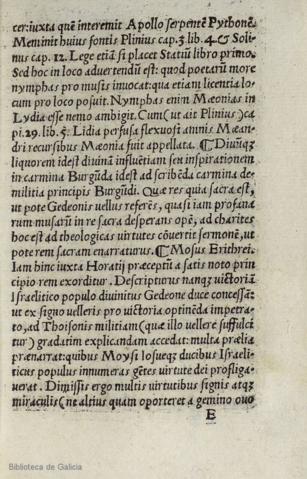 ter: iuxta quē interemit Apollo serpentē Pythonē.
Meminit huius fontis Plinius cap. 3. lib. 4. & Soli-
nus cap. 12. Lege etiā si placet Statiū libro primo.
Sed hoc in loco aduertendū est: quod poetarū more
nymphas pro musis inuocat: qua etiam licentia lo-
cum pro loco posuit. Nymphas enim Mæonias in
Lydia esse nemo ambigit. Cum ( ut ait Plinius ) ca
pi. 29. lib. 5. Lidia perfusa flexuosi amnis Mæan-
dri recursibus Mæonia fuit appellata. ¶ Diuiūqʒ
liquorem idest diuinā influētiam seu inspirationem
in carmina Burgūda idest ad scribēda carmina de
militia principis Burgūdi. Quæ res quia sacra est,
ut pote Gedeonis vellus referēs, quasi iam profana
rum musarū in re sacra desperans opē, ad charites
hoc est ad theologicas virtutes cōuertit sermonē, ut
pote rem sacram enarraturus. ¶ Mosus Erithrei.
Iam hinc iuxta Horatij præceptū a satis noto prin
cipio rem exorditur. Descripturus nanqʒ victoriā
Israelitico populo diuinitus Gedeone duce concessā:
ut ex signo uelleris pro victoria optinēda impetra-
to, ad Thoisonis militiam ( quæ illo vellere suffulci
tur ) gradatim explicandam accedat: multa prælia
prænarrat: quibus Moysi Iosueqʒ ducibus Israeli-
ticus populus innumeras gētes virtute dei profliga-
uerat. Dimissis ergo multis virtutibus signis atqʒ
miraculis ( ne altius quam oporteret a gemino ouo
E
Biblioteca de Galicia